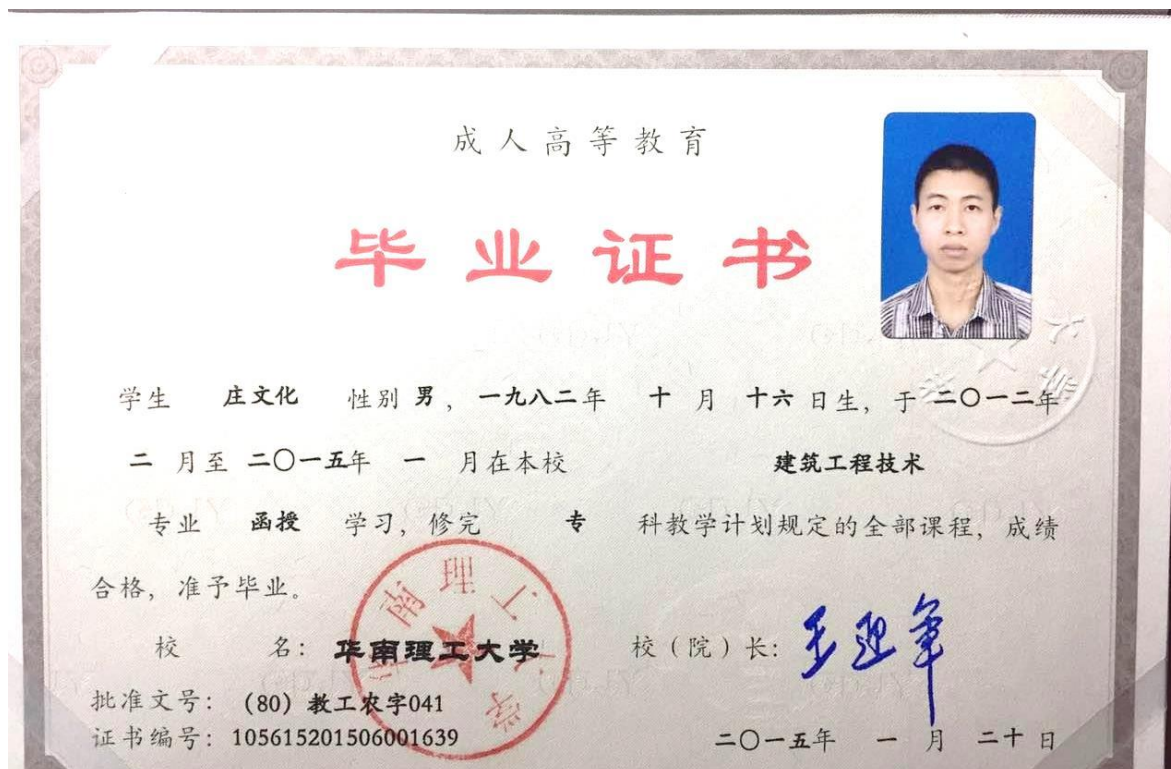 成人高等教育
毕业证书
学生 庄文化 性别 男，一九八二年 十 月 十六 日生，于 二〇一二年
二 月至 二〇一五年 一 月在本校 建筑工程技术
专业 函授 学习，修完 专 科教学计划规定的全部课程，成绩
合格，准予毕业。
校 名：华南理工大学 校（院）长：王迎军
批准文号：(80) 教工农字041
证书编号：105615201506001639
二〇一五年 一 月 二十 日
华南理工大学